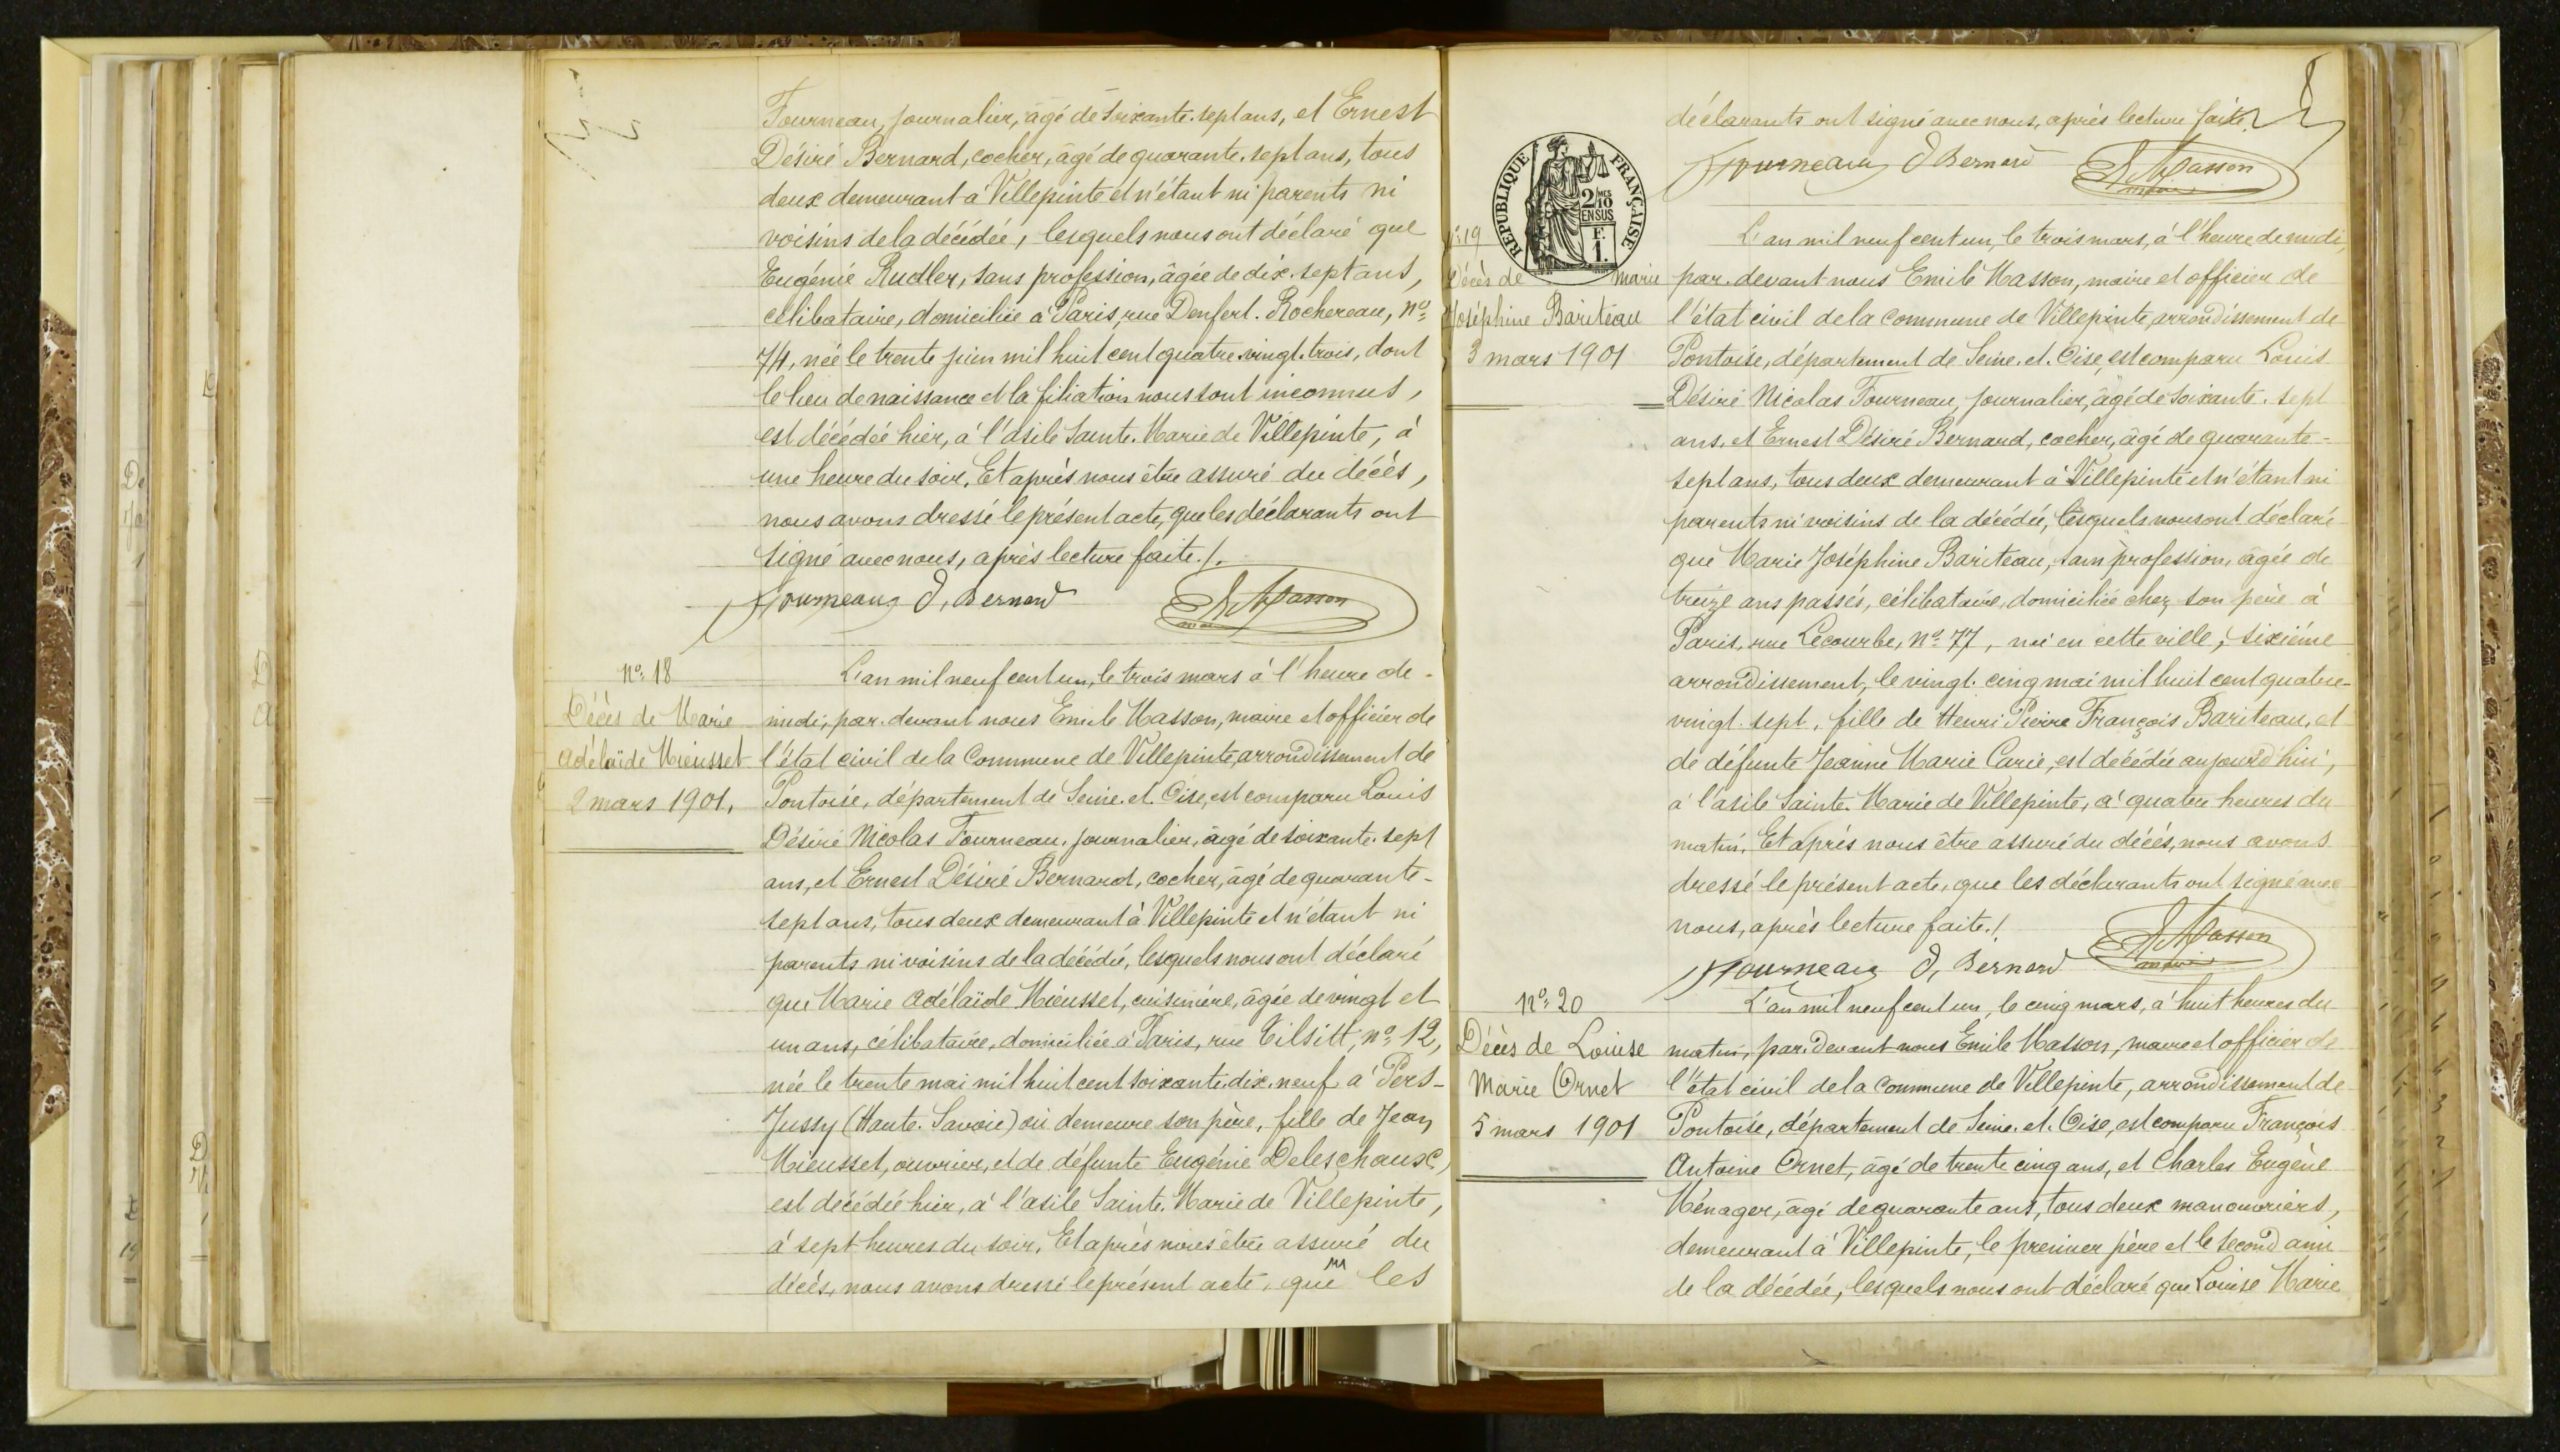 Fourneau, journalier, âgé de soixante-sept ans, et Ernest
Désiré Bernard, cocher, âgé de quarante-sept ans, tous
deux demeurant à Villepinte et n'étant ni parents ni
voisins de la décédée, lesquels nous ont déclaré que
Eugénie Rudler, sans profession, âgée de dix-sept ans,
célibataire, domiciliée à Paris, rue Denfert-Rochereau, n°
74, née le trente juin mil huit cent quatre-vingt-trois, dont
le lieu de naissance et la filiation nous sont inconnus,
est décédée hier, à l'asile Sainte-Marie de Villepinte, à
une heure du soir. Et après nous être assuré du décès,
nous avons dressé le présent acte, que les déclarants ont
signé avec nous, après lecture faite./.
Fourneaux D, Bernard E Masson
N° 18
Décès de Marie
Adélaïde Miéusset
2 mars 1901.
L'an mil neuf cent un, le trois mars à l'heure de
midi, par-devant nous Emile Masson, maire et officier de
l'état civil de la Commune de Villepinte, arrondissement de
Pontoise, département de Seine-et-Oise, est comparu Louis
Désiré Nicolas Fourneau, journalier, âgé de soixante-sept
ans, et Ernest Désiré Bernard, cocher, âgé de quarante-
sept ans, tous deux demeurant à Villepinte et n'étant ni
parents ni voisins de la décédée, lesquels nous ont déclaré
que Marie Adélaïde Miéusset, cuisinière, âgée de vingt et
un ans, célibataire, domiciliée à Paris, rue Tilsitt, n° 12,
née le trente mai mil huit cent soixante-dix-neuf à Pers-
Jussy (Haute-Savoie) où demeure son père, fille de Jean
Miéusset, ouvrier, et de défunte Eugénie Deleschaux,
est décédée hier, à l'asile Sainte-Marie de Villepinte,
à sept heures du soir. Et après nous être assuré du
décès, nous avons dressé le présent acte, que les
déclarants ont signé avec nous, après lecture faite.
Fourneaux D Bernard E Masson
maire
RÉPUBLIQUE FRANÇAISE
2/10 MES
EN SUS
F.
1.
N° 19
Décès de Marie
Joséphine Bariteau
3 mars 1901
L'an mil neuf cent un, le trois mars, à l'heure de midi,
par-devant nous Emile Masson, maire et officier de
l'état civil de la commune de Villepinte, arrondissement de
Pontoise, département de Seine-et-Oise, est comparu Louis
Désiré Nicolas Fourneau, journalier, âgé de soixante-sept
ans, et Ernest Désiré Bernard, cocher, âgé de quarante-
sept ans, tous deux demeurant à Villepinte et n'étant ni
parents ni voisins de la décédée, lesquels nous ont déclaré
que Marie Joséphine Bariteau, sans profession, âgée de
treize ans passés, célibataire, domiciliée chez son père à
Paris, rue Lecourbe, n° 77, née en cette ville, sixième
arrondissement, le vingt-cinq mai mil huit cent quatre-
vingt-sept, fille de Henri Pierre François Bariteau, et
de défunte Jeanne Marie Carié, est décédée aujourd'hui,
à l'asile Sainte-Marie de Villepinte, à quatre heures du
matin. Et après nous être assuré du décès, nous avons
dressé le présent acte, que les déclarants ont signé avec
nous, après lecture faite./.
Fourneaux D, Bernard E Masson
maire
N° 20
Décès de Louise
Marie Ornet
5 mars 1901
L'an mil neuf cent un, le cinq mars, à huit heures du
matin, par-devant nous Emile Masson, maire et officier de
l'état civil de la Commune de Villepinte, arrondissement de
Pontoise, département de Seine-et-Oise, est comparu François
Antoine Ornet, âgé de trente cinq ans, et Charles Eugène
Ménager, âgé de quarante ans, tous deux manouvriers,
demeurant à Villepinte, le premier père et le second ami
de la décédée, lesquels nous ont déclaré que Louise Marie